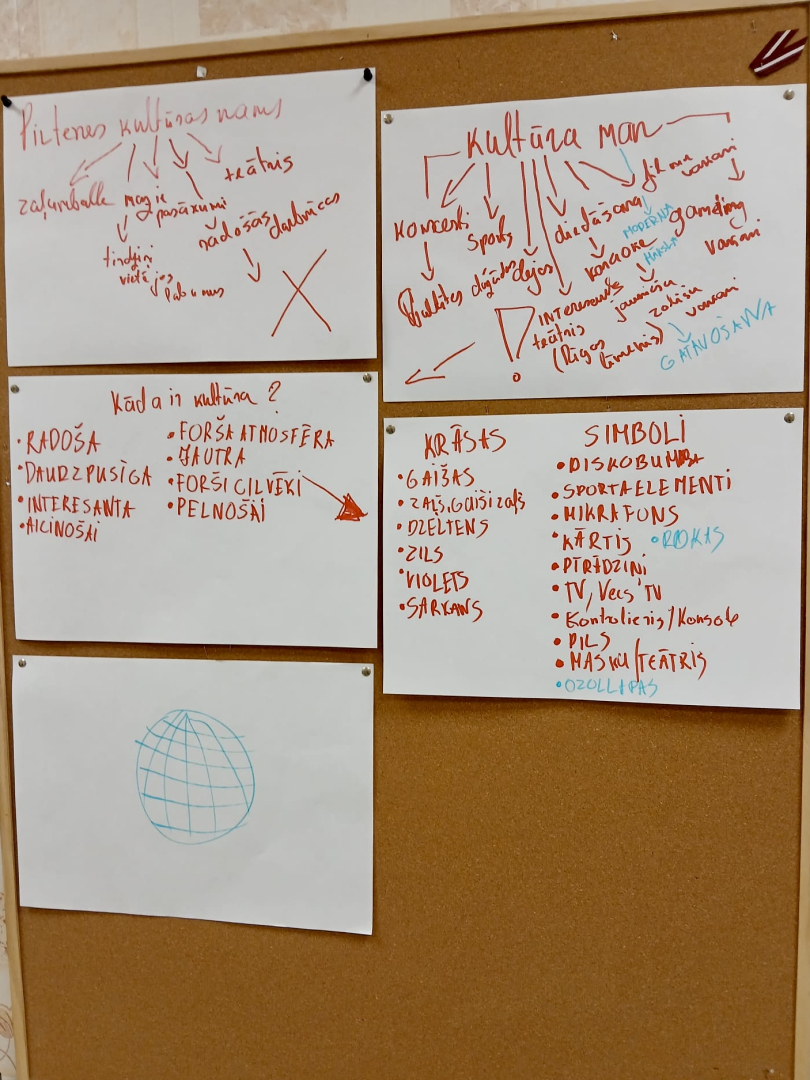 Piltenes kultūras nams
zaļumballe
mazie pasākumi
teātris
radošās darbnīcas
tirdziņi
vietējos
Kultūra man
koncerti
sports
dziedāšana
filmu vakari
dažādas dejas
karaoke
MODERNĀ
MĀKSLA
gameing vakari
INTERESANTS
teātris
(Rīgas līmenis)
jauniešu
vakari
GATAVOŠANA
Kāda ir kultūra?
• RADOŠA
• DAUDZPUSĪGA
• INTERESANTA
• AICINOŠAI
• FORŠA ATMOSFĒRA
• JAUTRA
• FORŠI CILVĒKI
• PELNOŠAI
KRĀSAS
• GAIŠAS
• ZAĻŠ, GAIŠI ZAĻŠ
• DZELTENS
• ZILS
• VIOLETS
• SARKANS
SIMBOLI
• DISKOBUMBA
• SPORTA ELEMENTI
• MIKRAFONS
• KĀRTIS • ROKAS
• PĪRĀDZIŅI
• TV, Vecs TV
• Kontrolieris/Konsole
• PILS
• MASKU/TEĀTRIS
• OZOLLAPAS